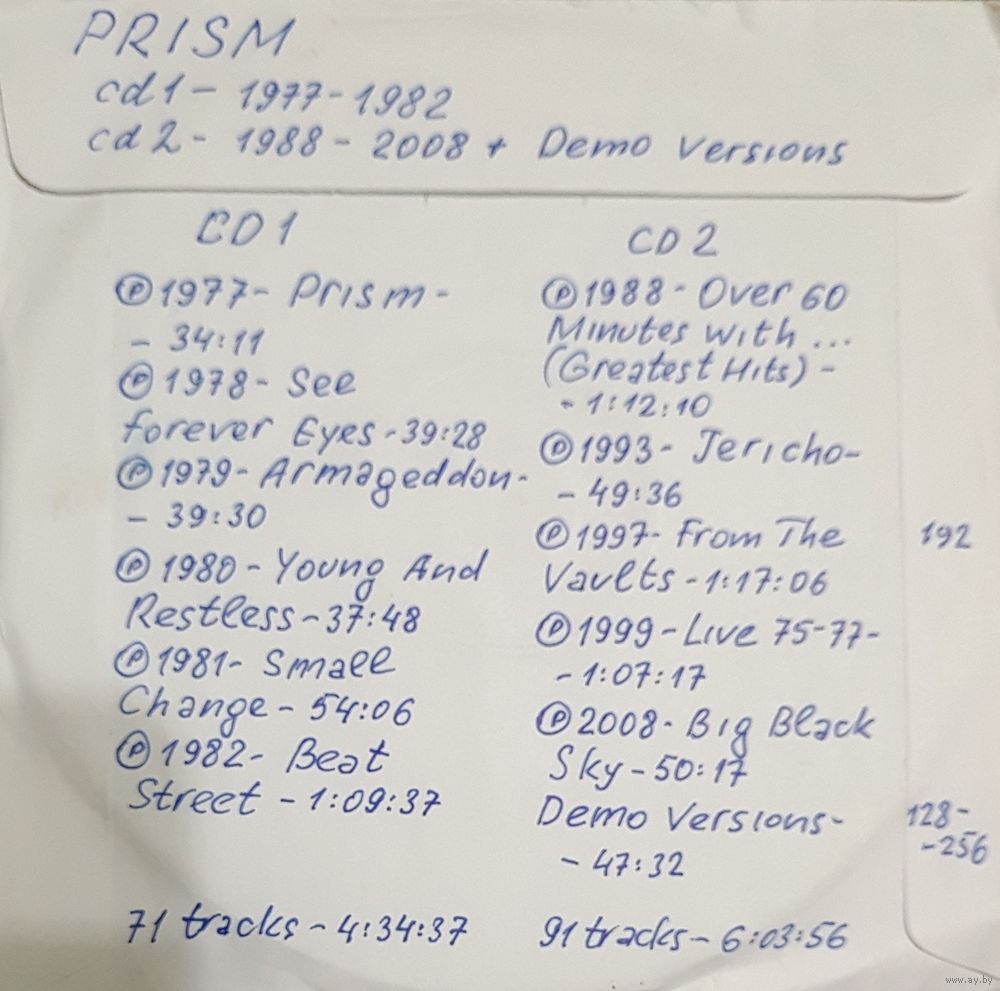 PRISM
cd1 - 1977-1982
cd2 - 1988 - 2008 + Demo Versions
CD1
Ⓟ1977- Prism -
- 34:11
Ⓟ1978- See
forever Eyes-39:28
Ⓟ1979-Armageddon-
- 39:30
Ⓟ1980-Young And
Restless-37:48
Ⓟ1981- Small
Change-54:06
Ⓟ1982- Beat
Street - 1:09:37
71 tracks - 4:34:37
CD2
Ⓟ1988- Over 60
Minutes with ...
(Greatest Hits) -
- 1:12:10
Ⓟ1993- Jericho-
- 49:36
Ⓟ1997- From The
Vaults-1:17:06
192
Ⓟ1999-Live 75-77-
-1:07:17
Ⓟ2008-Big Black
Sky-50:17
Demo Versions-
- 47:32
128-
-256
91 tracks- 6:03:56
www.ay.by